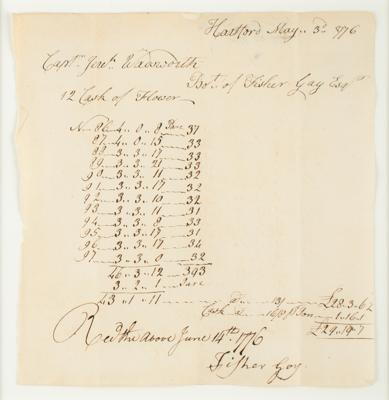 Hartford May 3d 1776
Capt. Jerh. Wadsworth
Bot. of Fisher Gay Esqr
12 Cask of Flower
No 86 4 0 8 Tare 37
87 4 0 15 33
88 3 3 17 33
89 3 3 21 33
90 3 3 11 32
91 3 3 17 32
92 3 3 10 32
93 3 3 11 31
94 3 3 8 33
95 3 3 17 31
96 3 3 17 34
97 3 3 0 32
46 3 12 393
3 2 1 Tare
43 1 11 £28 3 6
Cask 1 16 1
£29 19 7
Recd the above June 14th 1776
Fisher Gay